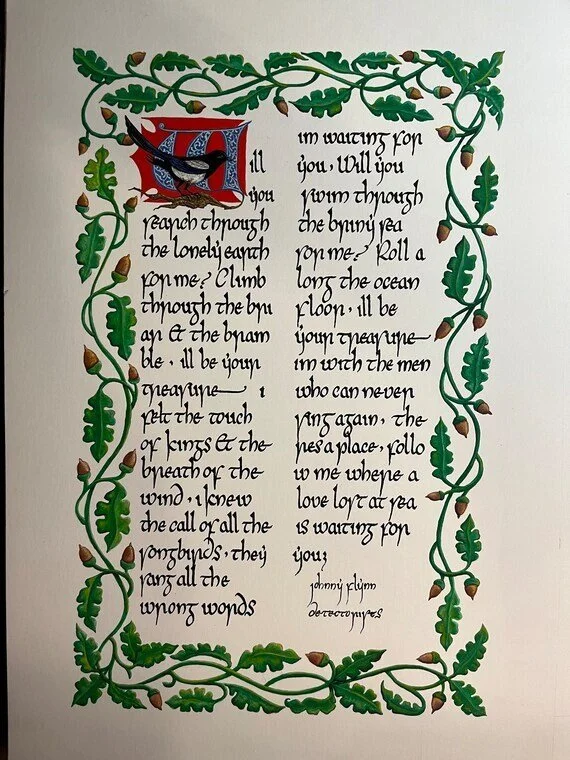 Will
you
search through
the lonely earth
for me? Climb
through the bri
ar & the bram
ble · ill be your
treasure i
felt the touch
of kings & the
breath of the
wind · i knew
the call of all the
songbirds · they
sang all the
wrong words
im waiting for
you · Will you
swim through
the briny sea
for me? Roll a
long the ocean
floor · ill be
your treasure
im with the men
who can never
sing again · the
res a place, follo
w me where a
love lost at sea
is waiting for
you;
johnny flynn
detectorists